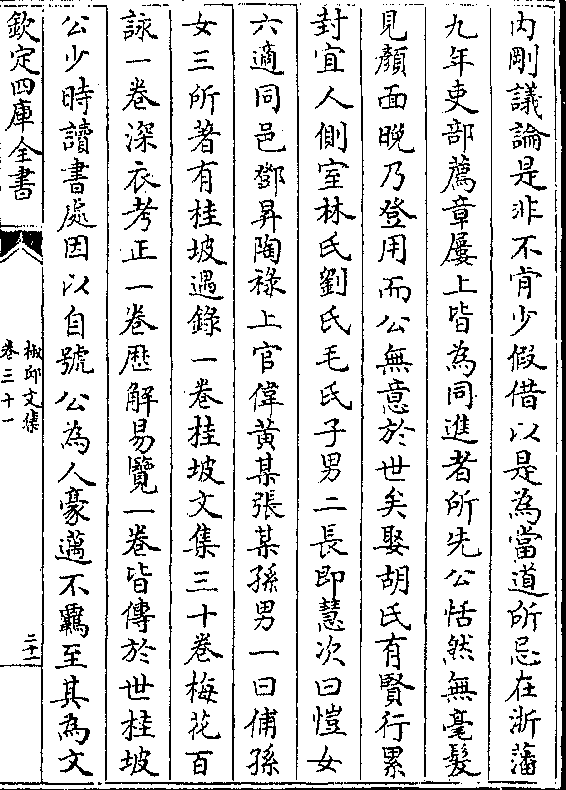 内剛議論是非不肯少假借以是為當道所忌在浙藩
九年吏部薦章屢上皆為同進者所先公恬然無毫髮
見顔面晚乃登用而公無意於世矣娶胡氏有賢行累
封宜人側室林氏劉氏毛氏子男二長即慧次曰愷女
六適同邑鄧昇陶祿上官偉黃某張某孫男一曰俌孫
女三所著有桂坡遇錄一卷桂坡文集三十卷梅花百
詠一卷深衣考正一卷厯解易覽一卷皆傳於世桂坡
公少時讀書處因以自號公為人豪邁不羈至其為文
欽定四庫全書
椒邱文集
卷三十一
二十一